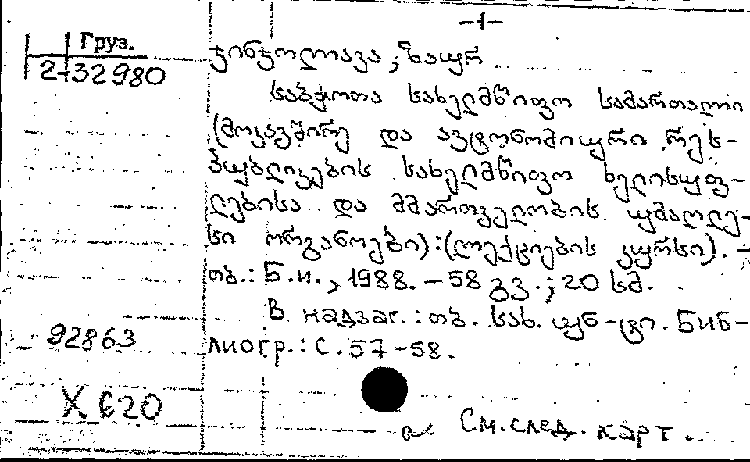 -1-
Груз.
2-32980
ჯინჯოლავა, ზაურ
საბჭოთა სახელმწიფო სამართალი
(მოკავშირე და ავტონომიური რეს-
პუბლიკების სახელმწიფო ხელისუფ-
ლებისა და მმართველობის უმაღლე-
სი ორგანოები):(ლექციების კურსი). -
თბ.: Б.и., 1988. - 58 გვ.; 20 სმ.
В надзаг.: თბ. სახ. უნ-ტი. Биб-
лиогр.: с. 57-58.
92863
X 620
См. след. карт.